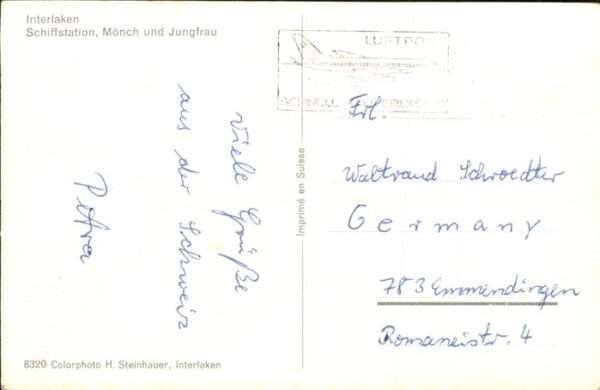 Interlaken
Schiffstation, Mönch und Jungfrau
LUFTPO
SCHNELL
Viele Grüße
aus der Schweiz
Petra
Imprimé en Suisse
Frl.
Waltraud Schroedter
Germany
783 Emmendingen
Romaneistr. 4
8320 Colorphoto H. Steinhauer, Interlaken